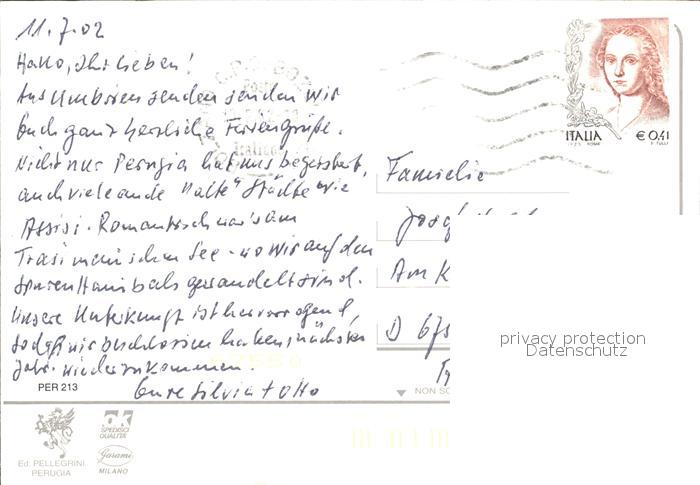 11.7.02
Hallo, Ihr Lieben!
Aus Umbrien senden senden wir
Euch ganz herzliche Feriengrüße.
Nicht nur Perugia hat uns begeistert,
auch viele ande "alte" Städte wie
Assisi. Romantisch war's am
Trasimenischen See - wo wir auf den
Spuren Hanibals gewandelt sind.
Unsere Unterkunft ist hervorragend,
so daß wir beschlossen haben, nächstes
Jahr wiederzukommen.
Eure Silvia + Otto
PER 213
Ed. PELLEGRINI
PERUGIA
OK
SPEDISCI
QUALITA'
Garami
MILANO
ITALIA
€ 0,41
Familie
Josef
Am K
D 675
NON SC
privacy protection
Datenschutz